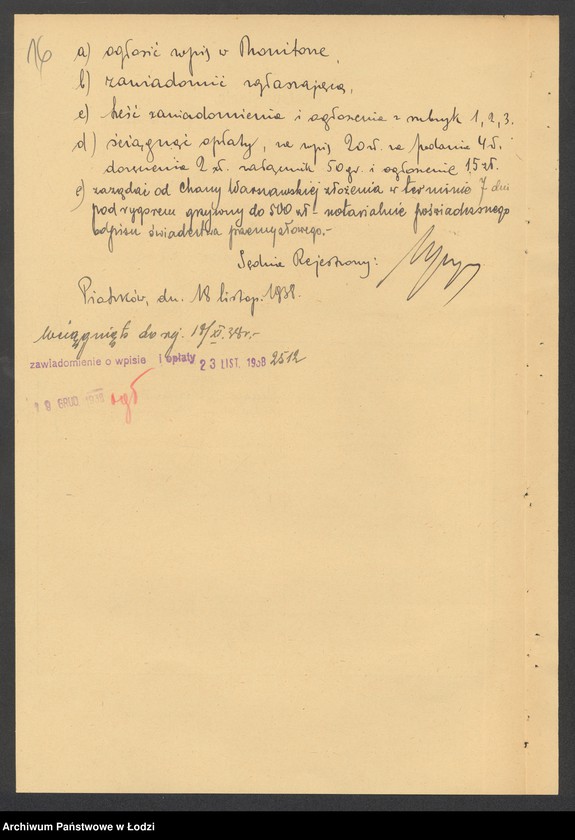 16
a) ogłosić wpis w Monitorze,
b) zawiadomić zgłaszającą,
c) treść zawiadomienia i ogłoszenia z rubryk 1, 2, 3.
d) ściągnąć opłaty, za wpis 20 zł. za podanie 4 zł.
doręczenia 2 zł. załącznik 50 gr. i ogłoszenie 15 zł.
e) zażądać od Chany Warszawskiej złożenia w terminie 7 dni
pod rygorem grzywny do 500 zł - notarialnie poświadczonego
odpisu świadectwa przemysłowego.-
Sędzia Rejestrowy:
Piotrków, dn. 18 listop. 1938.
Wciągnięto do rej. 19/XI.38r.-
zawiadomienie o wpisie i opłaty 23 LIST. 1938 2512
19 GRUD. 1938 ogł
Archiwum Państwowe w Łodzi